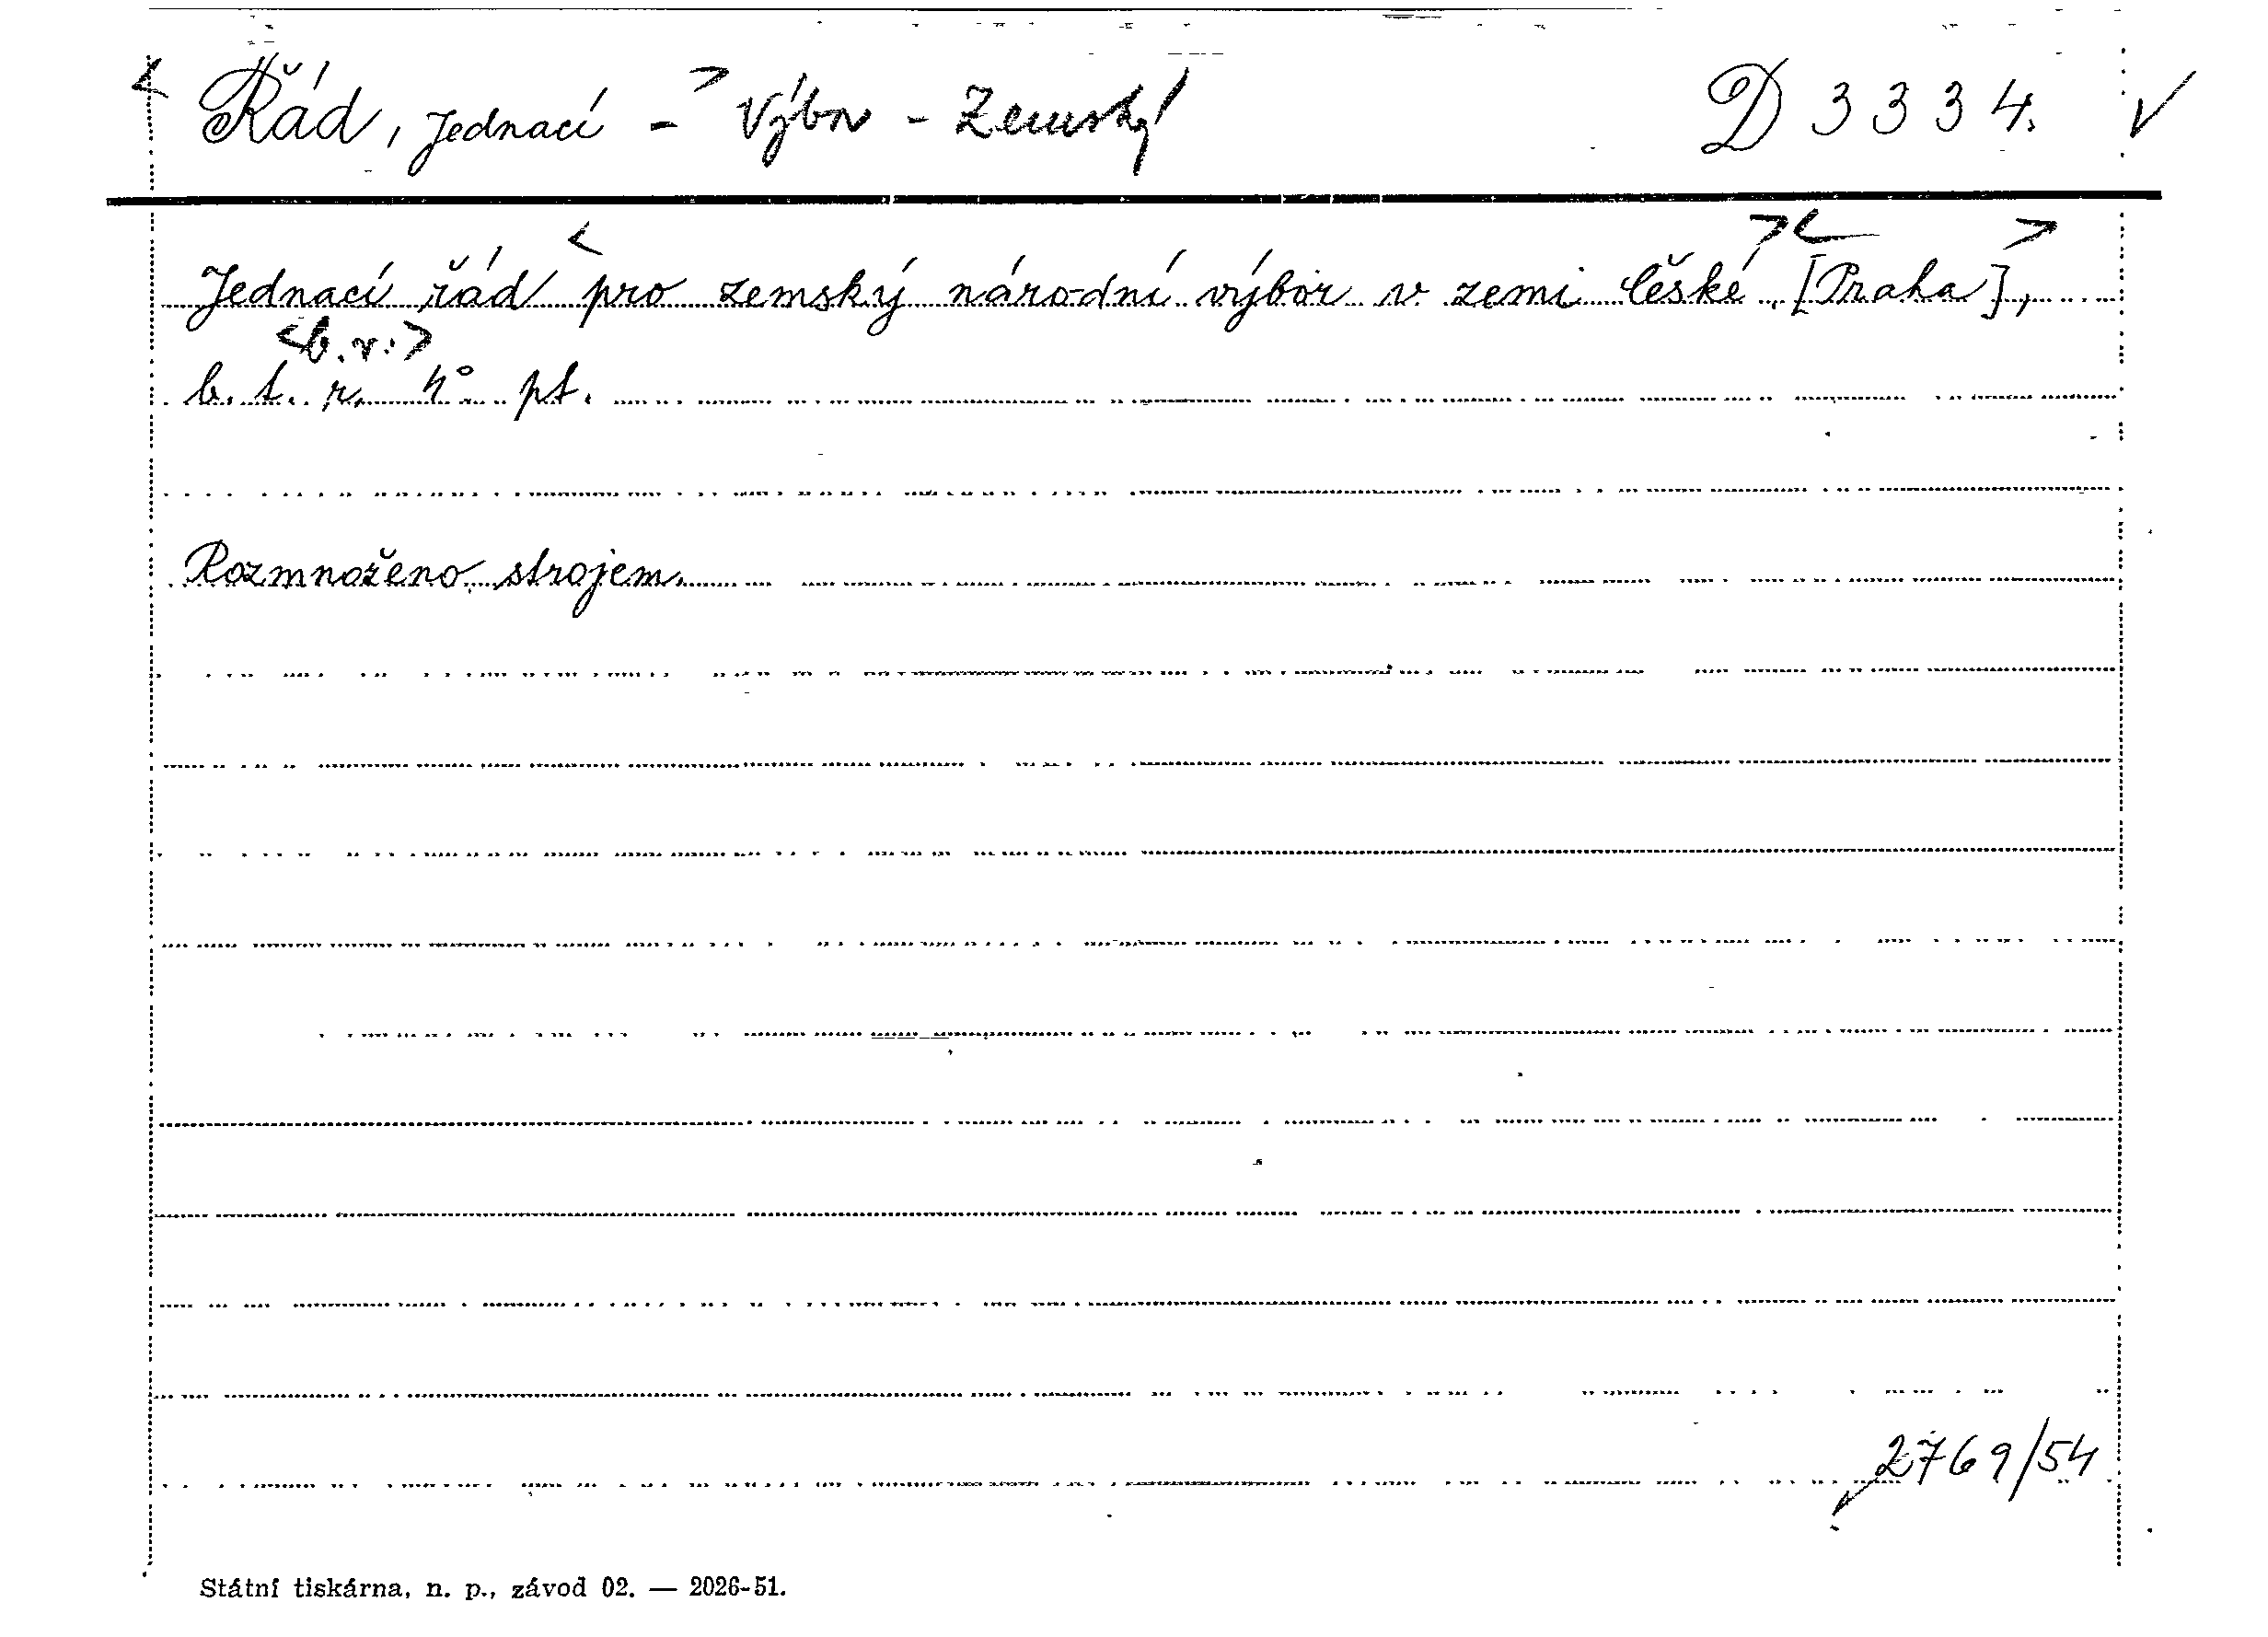 < Řád, Jednací - > Výbor - Zemský D 3334. √
< >< >
Jednací řád pro zemský národní výbor v zemi České. [Praha],
<b.r.>
b. t. r. 4° pt.
Rozmnoženo strojem.
2769/54
Státní tiskárna, n. p., závod 02. — 2026-51.